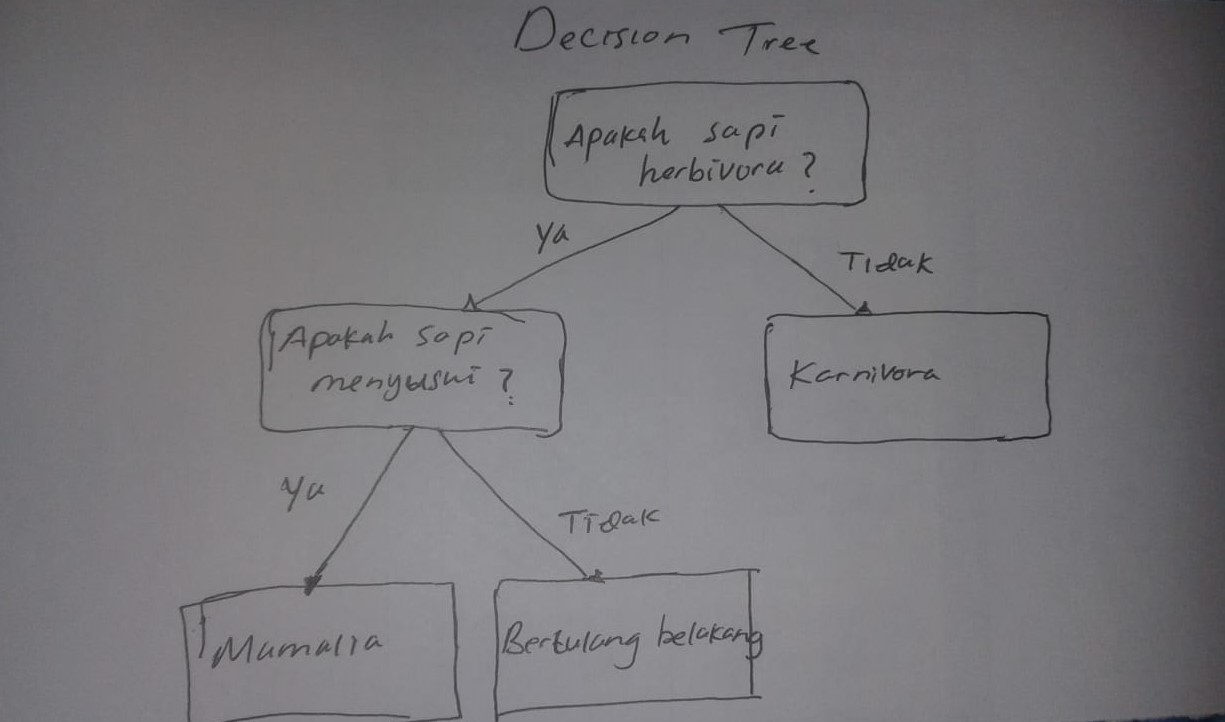 Decision Tree
Apakah sapi
herbivora ?
Ya
Tidak
Apakah sapi
menyusui ?
Karnivora
Ya
Tidak
Mamalia
Bertulang belakang